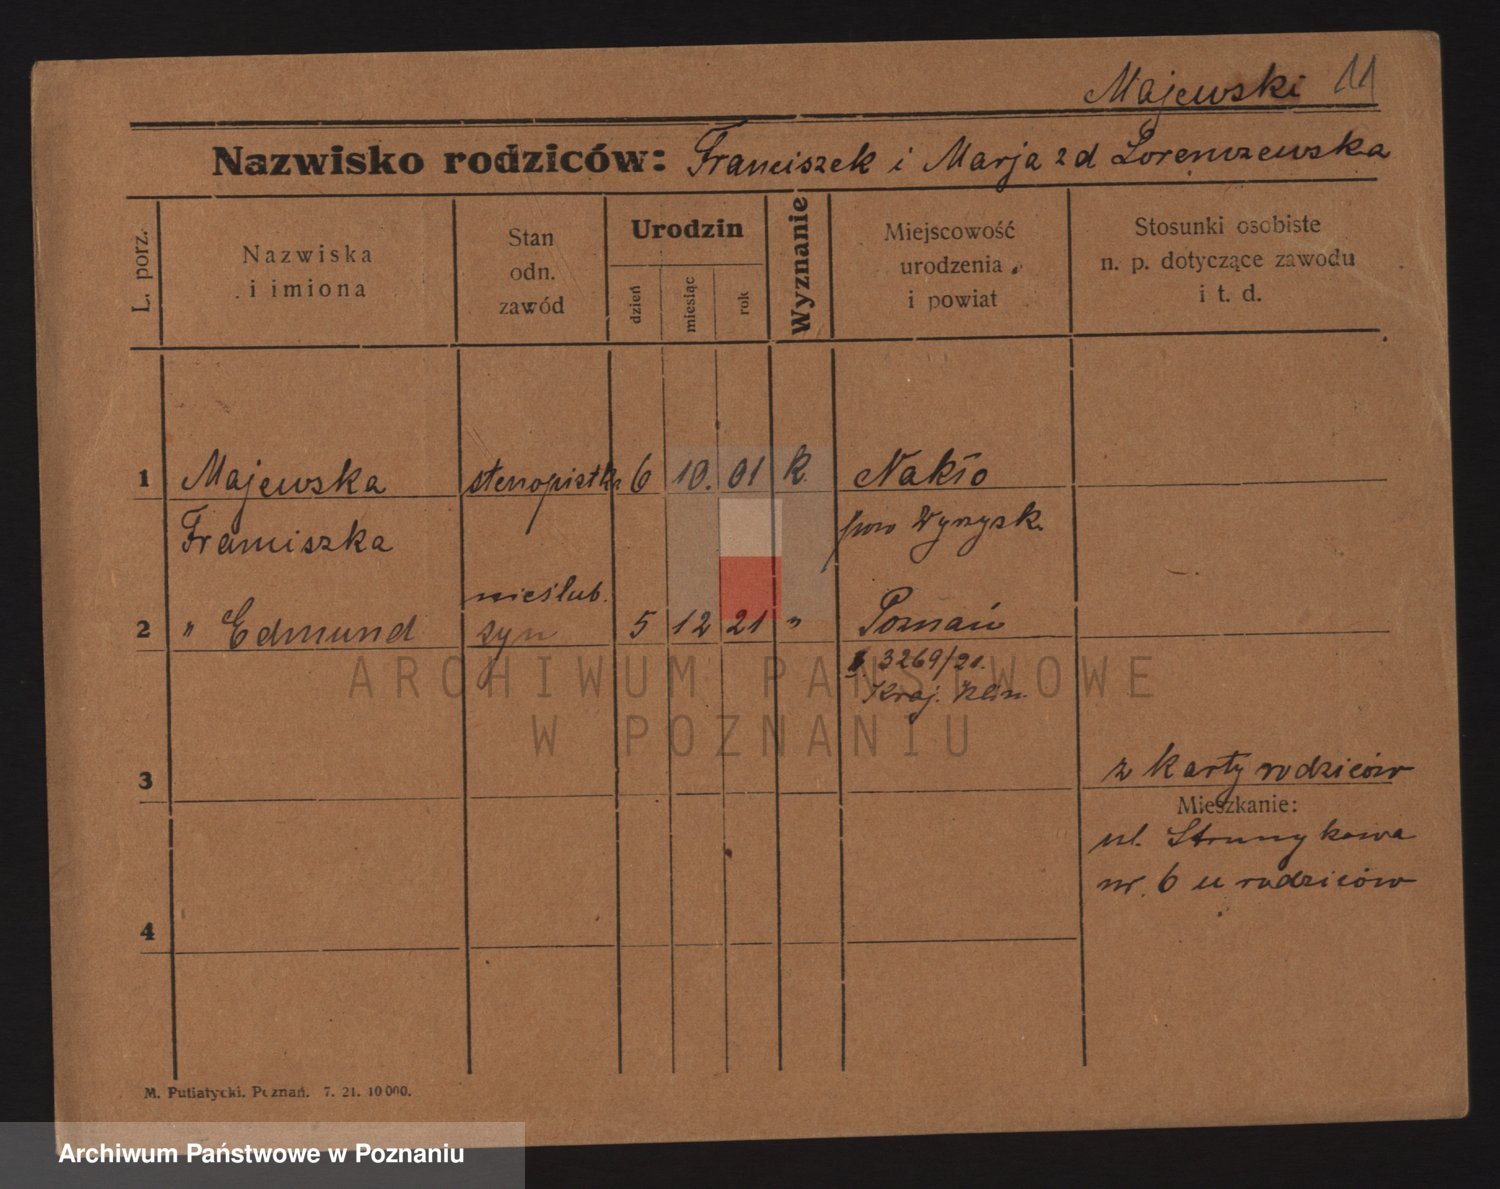 Majewski 11
Nazwisko rodziców: Franciszek i Marja z d Lorenczewska
L. porz.
Nazwiska
i imiona
Stan
odn.
zawód
Urodzin
dzień
miesiąc
rok
Wyznanie
Miejscowość
urodzenia
i powiat
Stosunki osobiste
n. p. dotyczące zawodu
i t. d.
1 Majewska stenopistk. 6 10. 01 k. Nakło
Franciszka pow Wyrzysk.
nieślub.
2 " Edmund syn 5 12 21 " Poznań
3269/21.
Kraj. Klin.
ARCHIWUM PAŃSTWOWE
W POZNANIU
3
z karty rodziców
Mieszkanie:
ul. Strumykowa
nr. 6 u rodziców
4
M. Putiatycki. Poznań. 7. 21. 10 000.
Archiwum Państwowe w Poznaniu